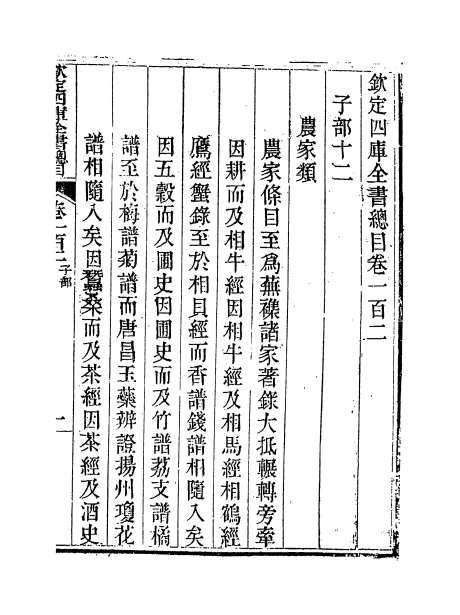 欽定四庫全書總目卷一百二
子部十二
農家類
農家條目至爲蕪襍諸家著錄大抵輾轉旁牽
因耕而及相牛經因相牛經及相馬經相鶴經
鷹經蟹錄至於相貝經而香譜錢譜相隨入矣
因五穀而及圃史因圃史而及竹譜荔支譜橘
譜至於梅譜菊譜而唐昌玉蘂辨證揚州瓊花
譜相隨入矣因蠶桑而及茶經因茶經及酒史
欽定四庫全書總目 卷一百二 子部 一